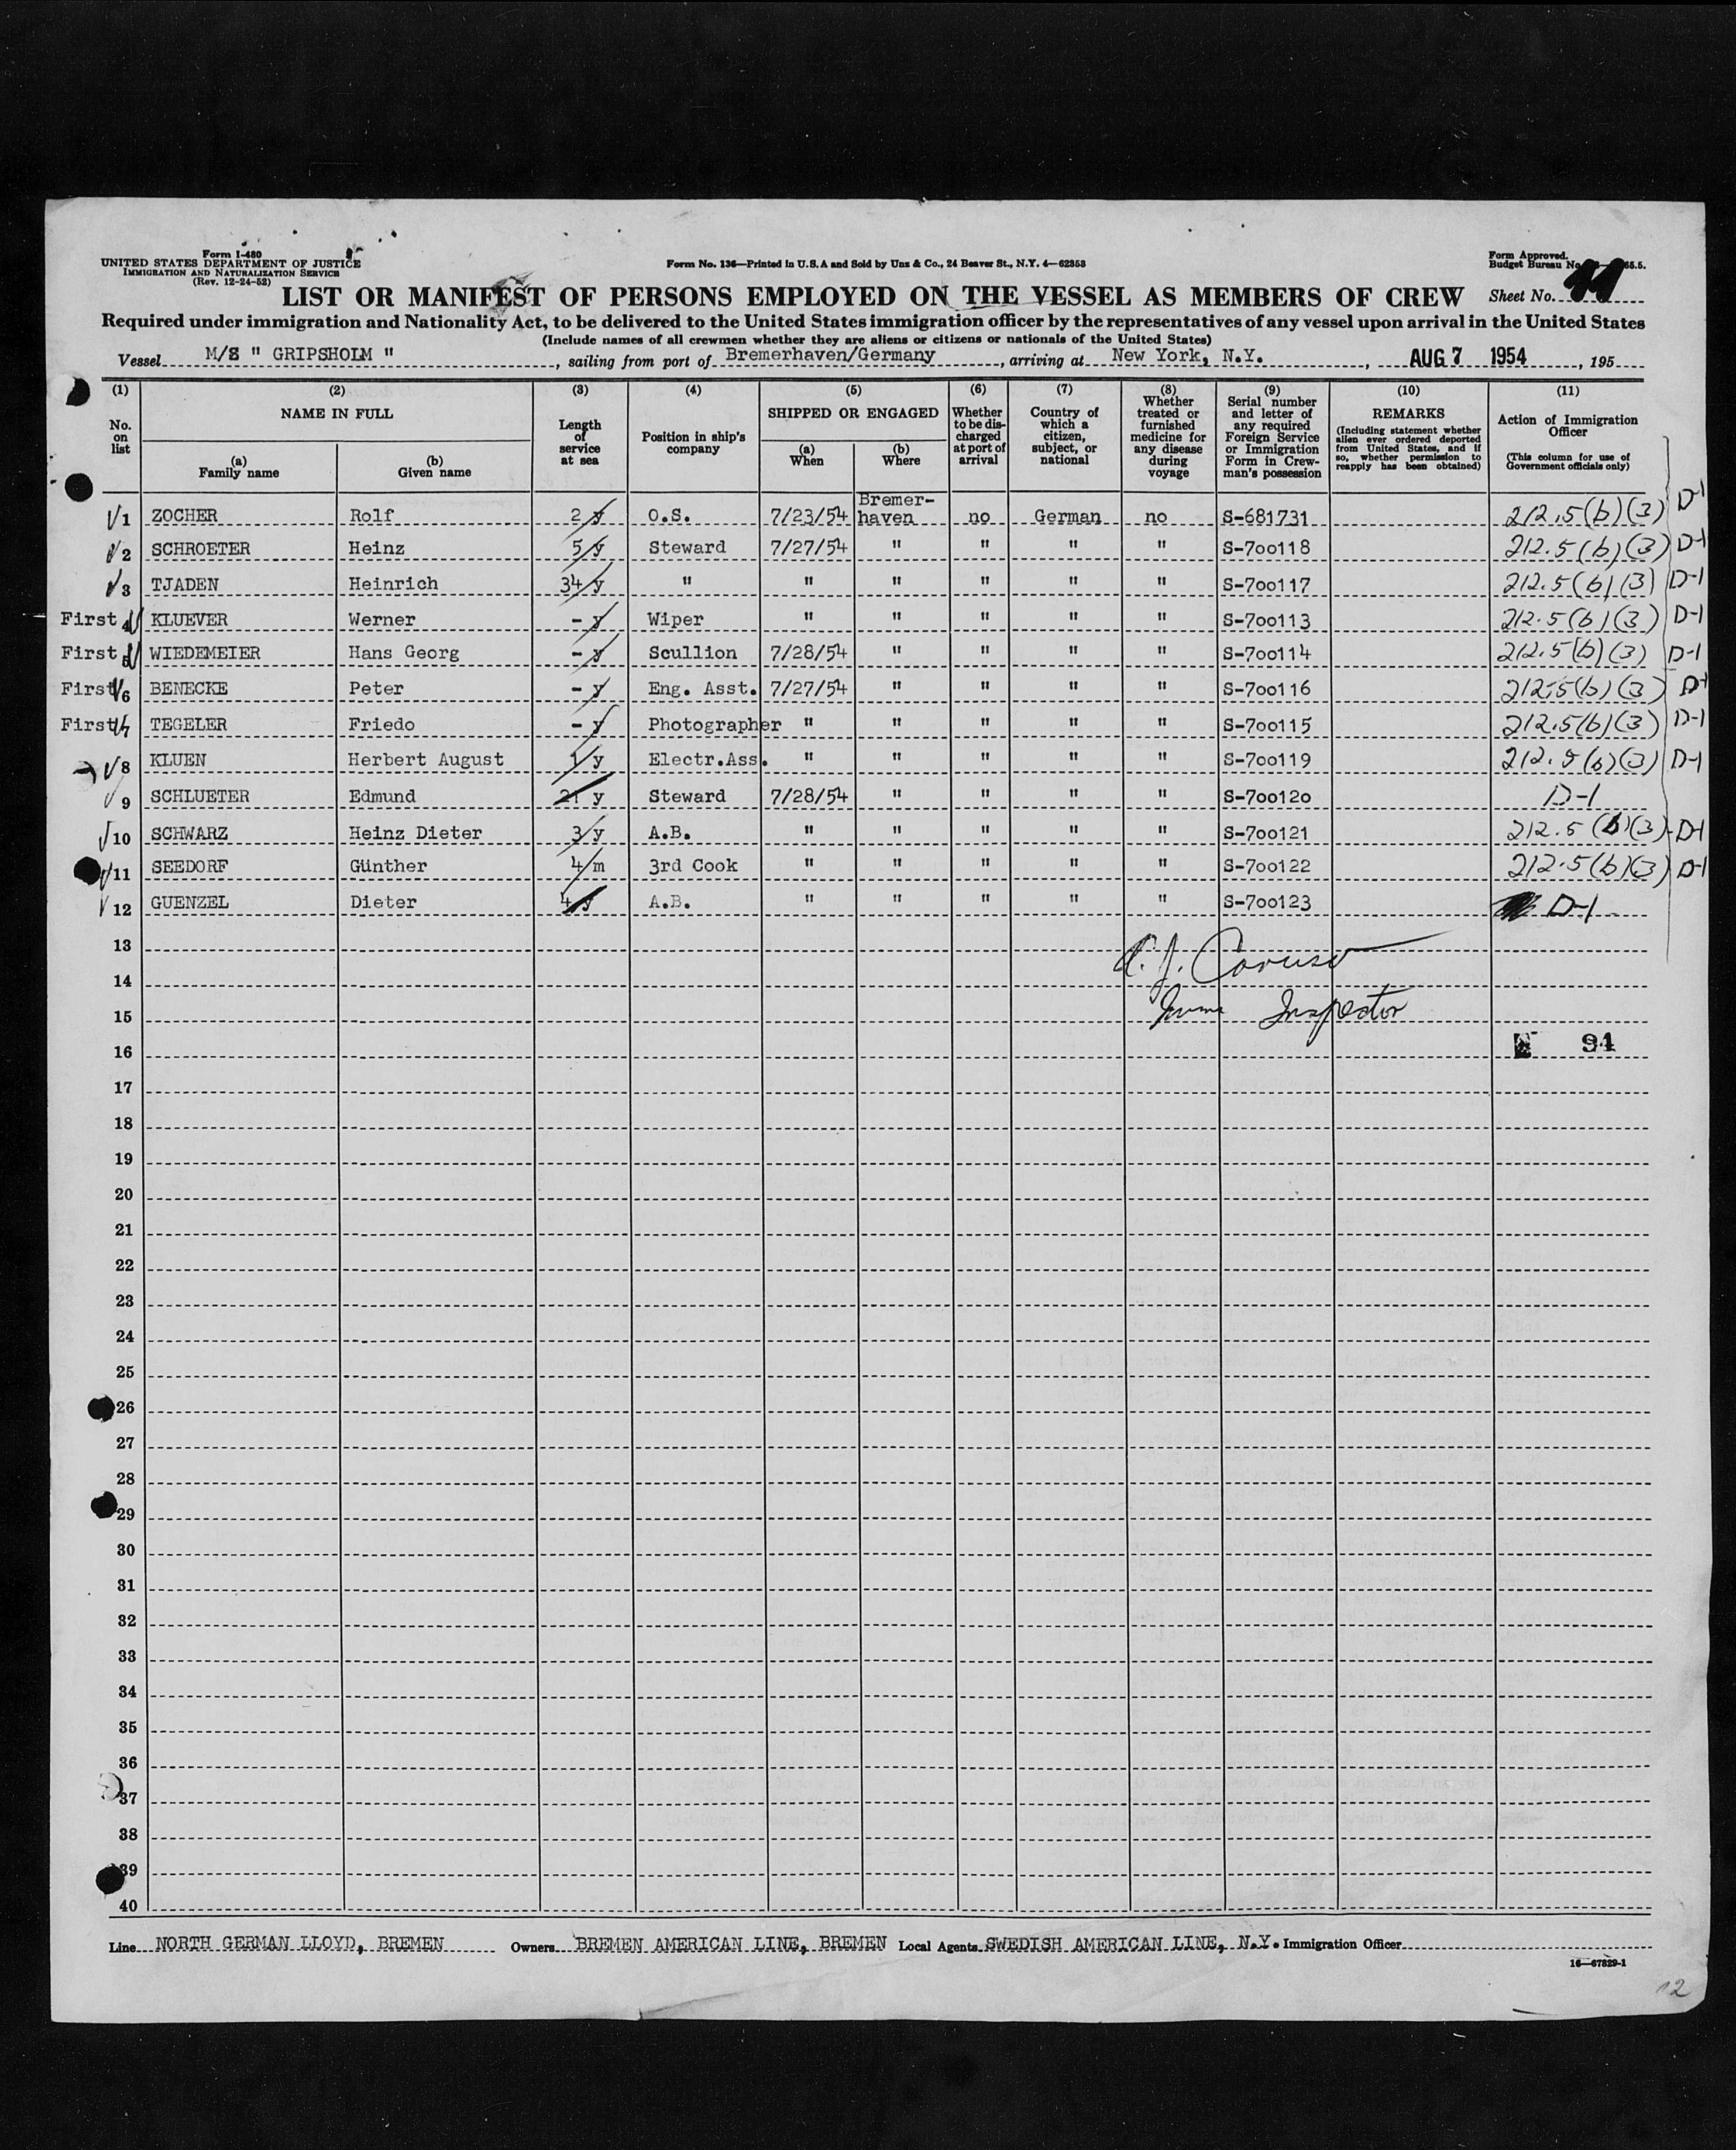 Form I-480
UNITED STATES DEPARTMENT OF JUSTICE
IMMIGRATION AND NATURALIZATION SERVICE
(Rev. 12-24-52)
Form No. 136—Printed in U.S.A and Sold by Unz & Co., 24 Beaver St., N.Y. 4—62353
Form Approved.
Budget Bureau No.
LIST OR MANIFEST OF PERSONS EMPLOYED ON THE VESSEL AS MEMBERS OF CREW Sheet No.
Required under immigration and Nationality Act, to be delivered to the United States immigration officer by the representatives of any vessel upon arrival in the United States
(Include names of all crewmen whether they are aliens or citizens or nationals of the United States)
Vessel M/S " GRIPSHOLM " , sailing from port of Bremerhaven/Germany , arriving at New York, N.Y. , AUG 7 1954 , 195
(1) (2) (3) (4) (5) (6) (7) (8) (9) (10) (11)
No. on list
NAME IN FULL
(a) Family name
(b) Given name
Length of service at sea
Position in ship's company
SHIPPED OR ENGAGED
(a) When
(b) Where
Whether to be discharged at port of arrival
Country of which a citizen, subject, or national
Whether treated or furnished medicine for any disease during voyage
Serial number and letter of any required Foreign Service or Immigration Form in Crewman's possession
REMARKS
(Including statement whether alien ever ordered deported from United States, and if so, whether permission to reapply has been obtained)
Action of Immigration Officer
(This column for use of Government officials only)
1 ZOCHER Rolf 2 y O.S. 7/23/54 Bremer-haven no German no S-681731 212.5(b)(3) D-1
2 SCHROETER Heinz 5 y Steward 7/27/54 " " " " S-700118 212.5(b)(3) D-1
3 TJADEN Heinrich 34 y " " " " " " S-700117 212.5(b)(3) D-1
First 4 KLUEVER Werner - y Wiper " " " " " S-700113 212.5(b)(3) D-1
First 5 WIEDEMEIER Hans Georg - y Scullion 7/28/54 " " " " S-700114 212.5(b)(3) D-1
First 6 BENECKE Peter - y Eng. Asst. 7/27/54 " " " " S-700116 212.5(b)(3) D-1
First 7 TEGELER Friedo - y Photographer " " " " " S-700115 212.5(b)(3) D-1
8 KLUEN Herbert August 1 y Electr.Ass. " " " " " S-700119 212.5(b)(3) D-1
9 SCHLUETER Edmund 21 y Steward 7/28/54 " " " " S-700120 D-1
10 SCHWARZ Heinz Dieter 3 y A.B. " " " " " S-700121 212.5(b)(3) D-1
11 SEEDORF Günther 4 m 3rd Cook " " " " " S-700122 212.5(b)(3) D-1
12 GUENZEL Dieter 4 y A.B. " " " " " S-700123 D-1
13
14
15
16
17
18
19
20
21
22
23
24
25
26
27
28
29
30
31
32
33
34
35
36
37
38
39
40
Caruso
Imm Inspector
94
Line NORTH GERMAN LLOYD, BREMEN Owners BREMEN AMERICAN LINE, BREMEN Local Agents SWEDISH AMERICAN LINE, N.Y. Immigration Officer
16—67829-1
12